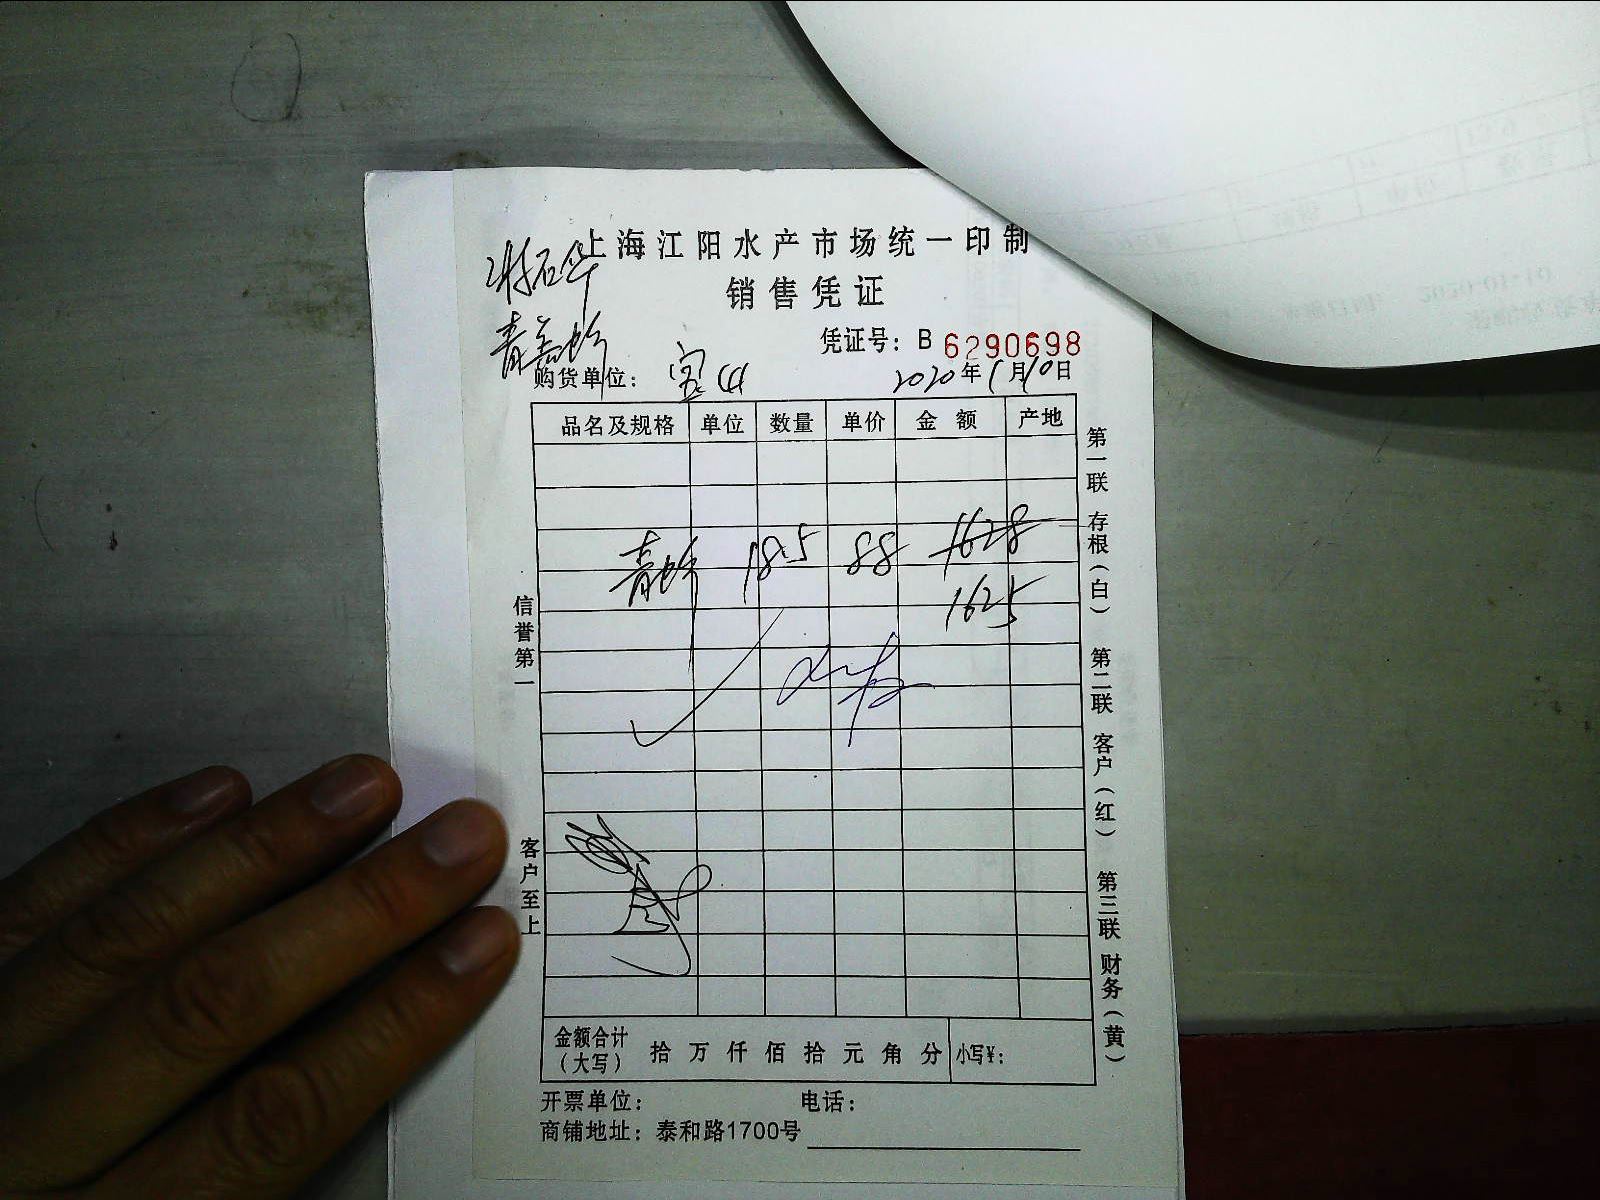 上海江阳水产市场统一印制
销售凭证
凭证号：B 6290698
购货单位：宝山 2020年1月10日
品名及规格 单位 数量 单价 金额 产地
1628
青虾 18.5 88
1625
信誉第一
客户至上
第一联 存根（白） 第二联 客户（红） 第三联 财务（黄）
金额合计（大写） 拾 万 仟 佰 拾 元 角 分 小写¥：
开票单位： 电话：
商铺地址：泰和路1700号